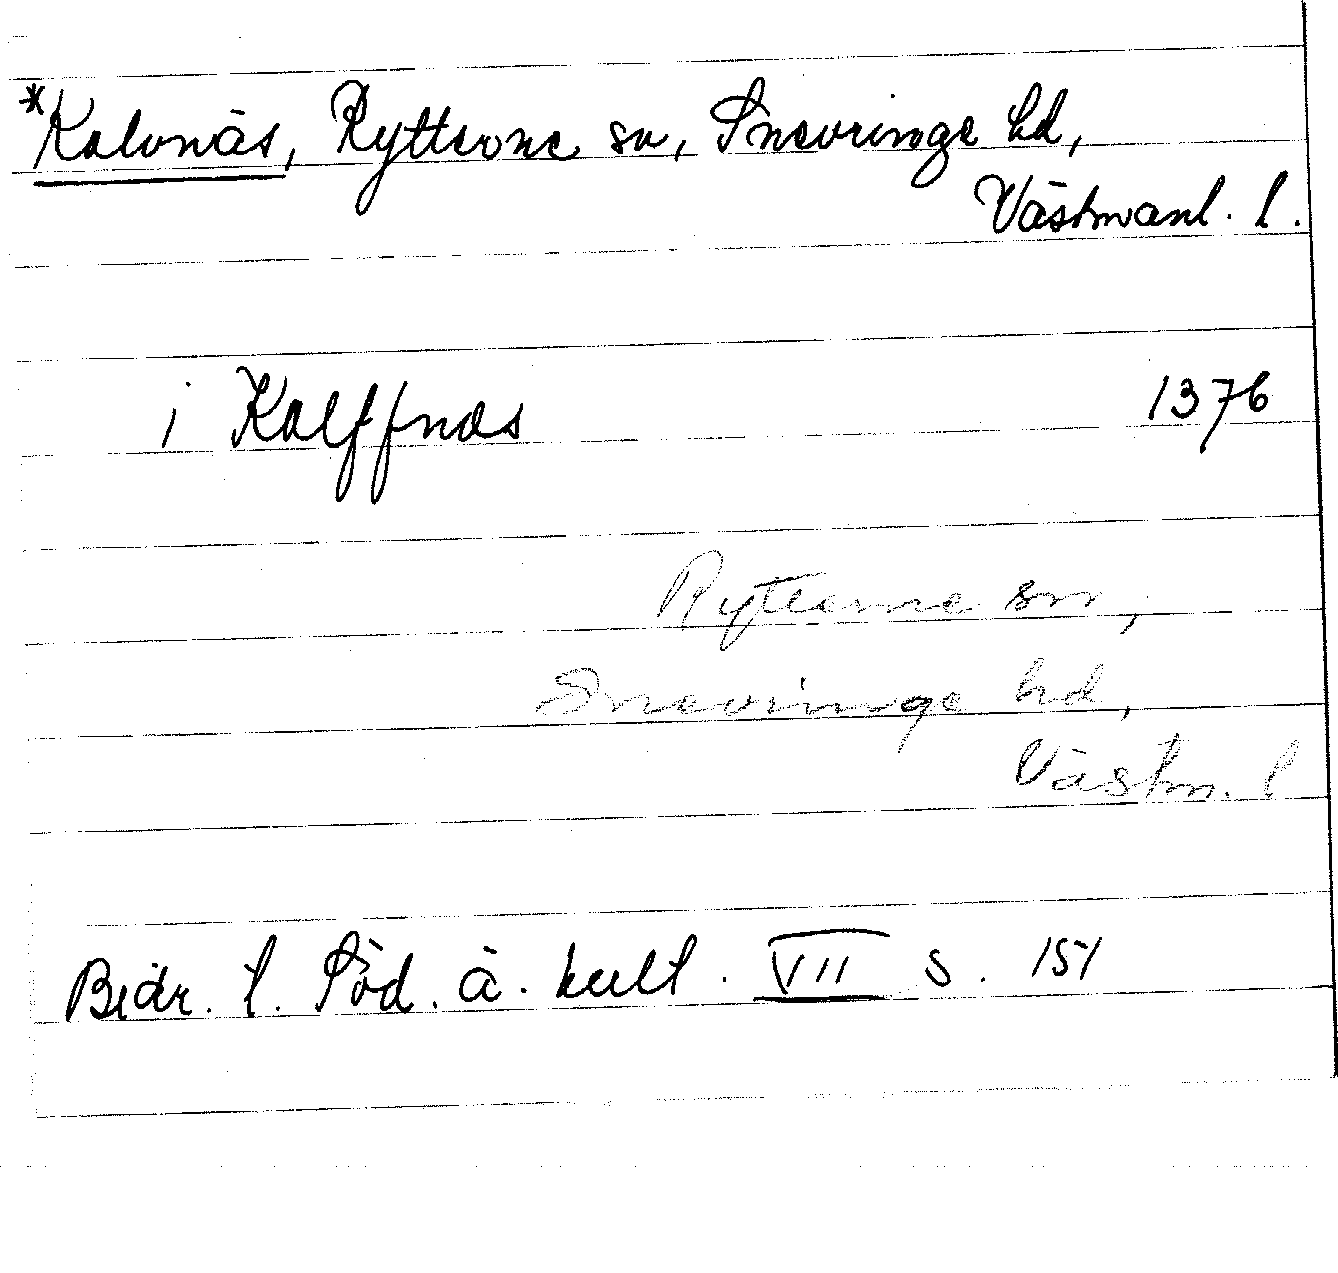 *Kalvnäs, Rytterne sn, Snevringe hd,
Västmanl. l.
i Kalffnæs 1376
Rytterne sn,
Snevringe hd,
Västm. l
Bidr. t. Söd. ä. kult. VII s. 151